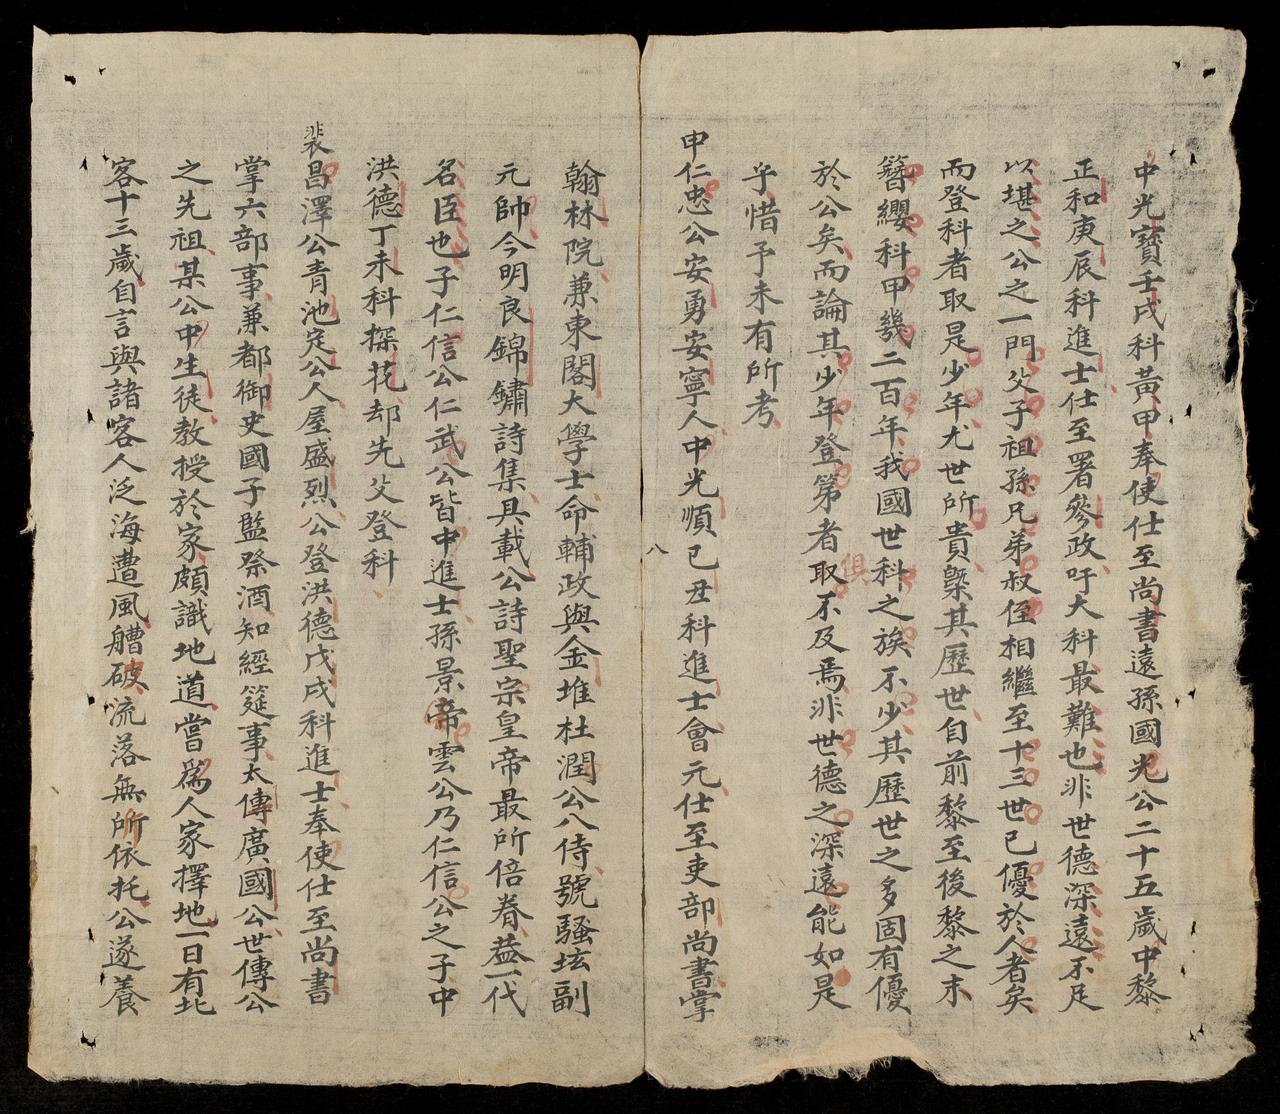 中光寶壬戌科黃甲奉使仕至尚書遠孫國光公二十五歲中黎
正和庚辰科進士仕至署參政吁大科最難也非世德深遠不足
以堪之公之一門父子祖孫兄弟叔侄相繼至十三世已優於人者矣
而登科者取是少年尤世所貴槩其歷世自前黎至後黎之末
簪纓科甲幾二百年我國世科之族不少其歷世之多固有優
於公矣而論其少年登第者取不及焉非世德之深遠能如是
俱
乎惜予未有所考
申仁忠公安勇安寧人中光順己丑科進士會元仕至吏部尚書掌
八
翰林院兼東閣大學士命輔政與金堆杜潤公入侍號騷坛副
元帥今明良錦鏽詩集具載公詩聖宗皇帝最所倍眷葢一代
名臣也子仁信公仁武公皆中進士孫景帝雲公乃仁信公之子中
洪德丁未科探花却先父登科
裴昌澤公青池定公人屋盛烈公登洪德戊戌科進士奉使仕至尚書
掌六部事兼都御史國子監祭酒知經筵事太傅廣國公世傳公
之先祖某公中生徒教授於家頗識地道嘗爲人家擇地一日有北
客十三歲自言與諸客人泛海遭風艚破流落無所依托公遂養